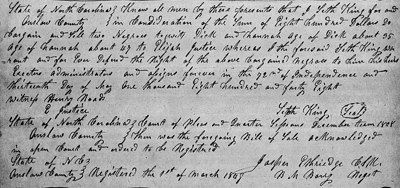 State of North Carolina } Know all men by these presents that I Seth King for and
Onslow County } in Consideration of the Sum of Eight hundred Dollars do
bargain and sell two Negroes to wit Dick and Hannah age of Dick about 25
age of Hannah about 47 to Elijah Justice whereas I the foresaid Seth King war
rant and for Ever Defend the Right of the above bargained Negroes to him his heirs
Executors administrators and assigns forever in the 72nd of Independence and
thirteenth day of May One thousand Eight hundred and forty Eight
witness Henry Roads
E Justice Seth King, (Seal)
State of North Carolina } Court of Pleas and Quarter Sessions December term 1848
Onslow County } Then was the foregoing Bill of Sale acknowledged
in open Court and ordered to be Registered
State of N C } Jasper Etheridge Clk.
Onslow County } Registered the 1st of March 1849